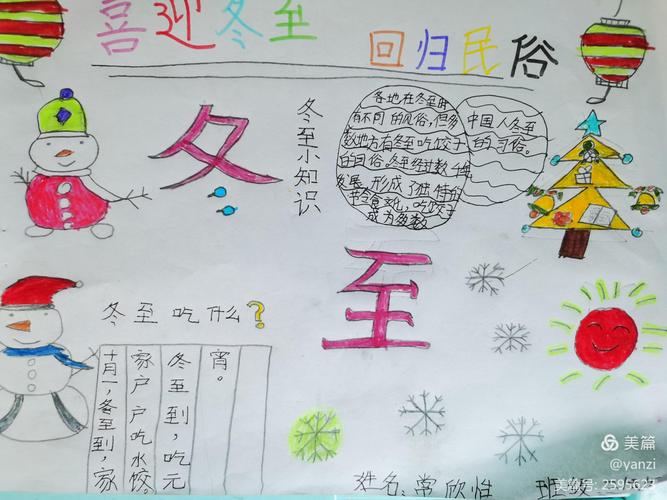 喜迎冬至
回归民俗
冬
至
冬至小知识
各地在冬至时
有不同的风俗,但多
数地方有冬至吃饺子
的习俗。冬至经过数千年
发展,形成了独特的
节令食文化,吃饺子
成为多数
中国人冬至
的习俗。
冬至吃什么?
十月一,冬至到,家
家户户吃水饺。
冬至到,吃元
宵。
姓名:常欣怡
美篇
@yanzi
美篇号: 2595623